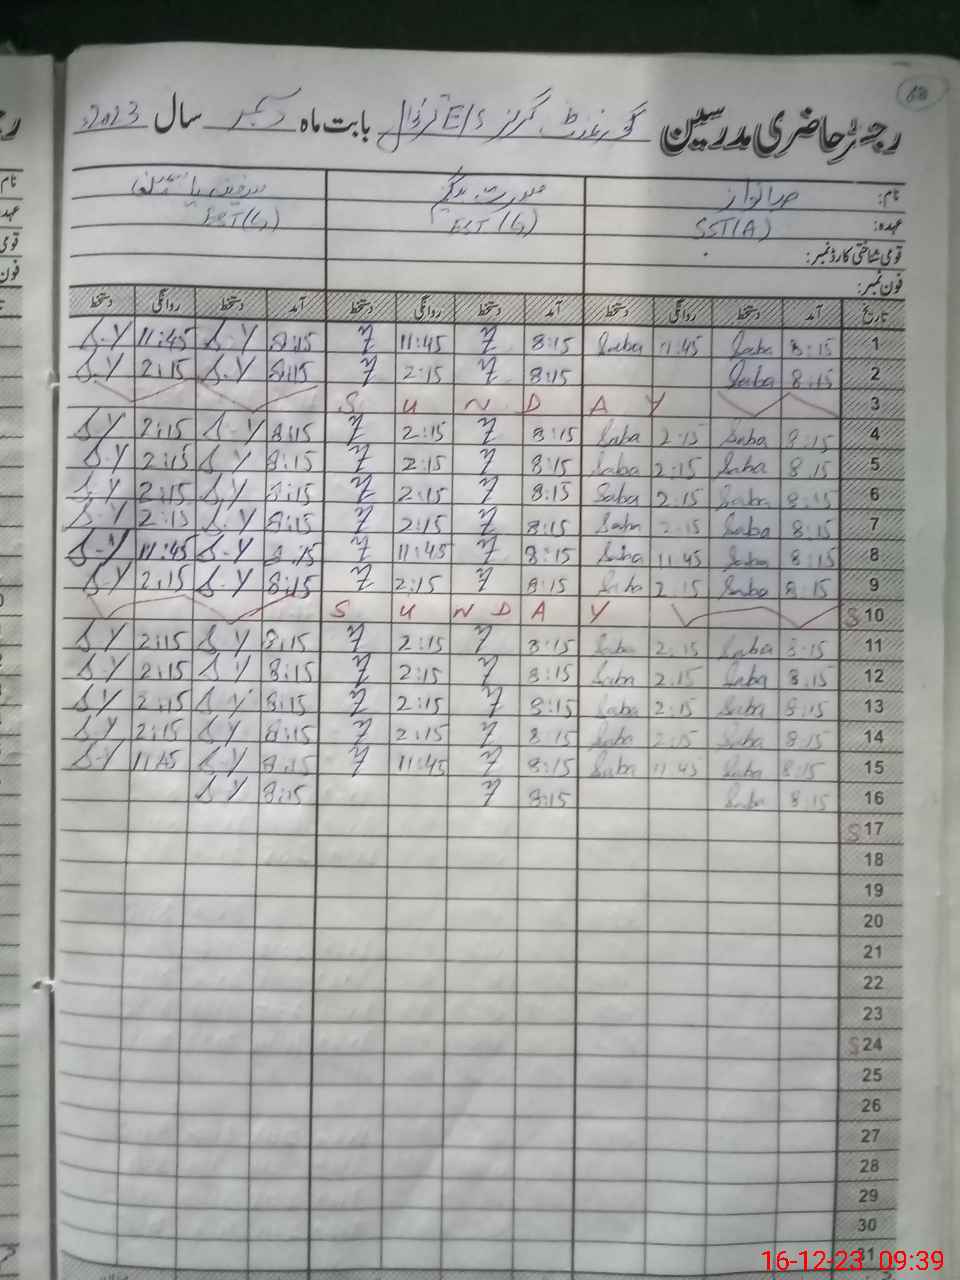 68
رجسٹر حاضری مدرسین گورنمنٹ گرلز E/S بابت ماہ دسمبر سال 2023ء
نام:
عہدہ: SST(A) EST(G) EST(G)
قومی شناختی کارڈ نمبر:
فون نمبر:
تاریخ آمد دستخط روانگی دستخط آمد دستخط روانگی دستخط آمد دستخط روانگی دستخط
1 8:15 Saba 11:45 Saba 8:15 11:45 8:15 S.Y 11:45 S.Y
2 8:15 Saba 8:15 2:15 8:15 S.Y 2:15 S.Y
3 SUNDAY
4 8:15 Saba 2:15 Saba 8:15 2:15 8:15 S.Y 2:15 S.Y
5 8:15 Saba 2:15 Saba 8:15 2:15 8:15 S.Y 2:15 S.Y
6 8:15 Saba 2:15 Saba 8:15 2:15 8:15 S.Y 2:15 S.Y
7 8:15 Saba 2:15 Saba 8:15 2:15 8:15 S.Y 2:15 S.Y
8 8:15 Saba 11:45 Saba 8:15 11:45 8:15 S.Y 11:45 S.Y
9 8:15 Saba 2:15 Saba 8:15 2:15 8:15 S.Y 2:15 S.Y
S 10 SUNDAY
11 8:15 Saba 2:15 Saba 8:15 2:15 8:15 S.Y 2:15 S.Y
12 8:15 Saba 2:15 Saba 8:15 2:15 8:15 S.Y 2:15 S.Y
13 8:15 Saba 2:15 Saba 8:15 2:15 8:15 S.Y 2:15 S.Y
14 8:15 Saba 2:15 Saba 8:15 2:15 8:15 S.Y 2:15 S.Y
15 8:15 Saba 11:45 Saba 8:15 11:45 8:15 S.Y 11:45 S.Y
16 8:15 Saba 8:15 8:15 S.Y
S 17
18
19
20
21
22
23
S 24
25
26
27
28
29
30
31
16-12-23 09:39